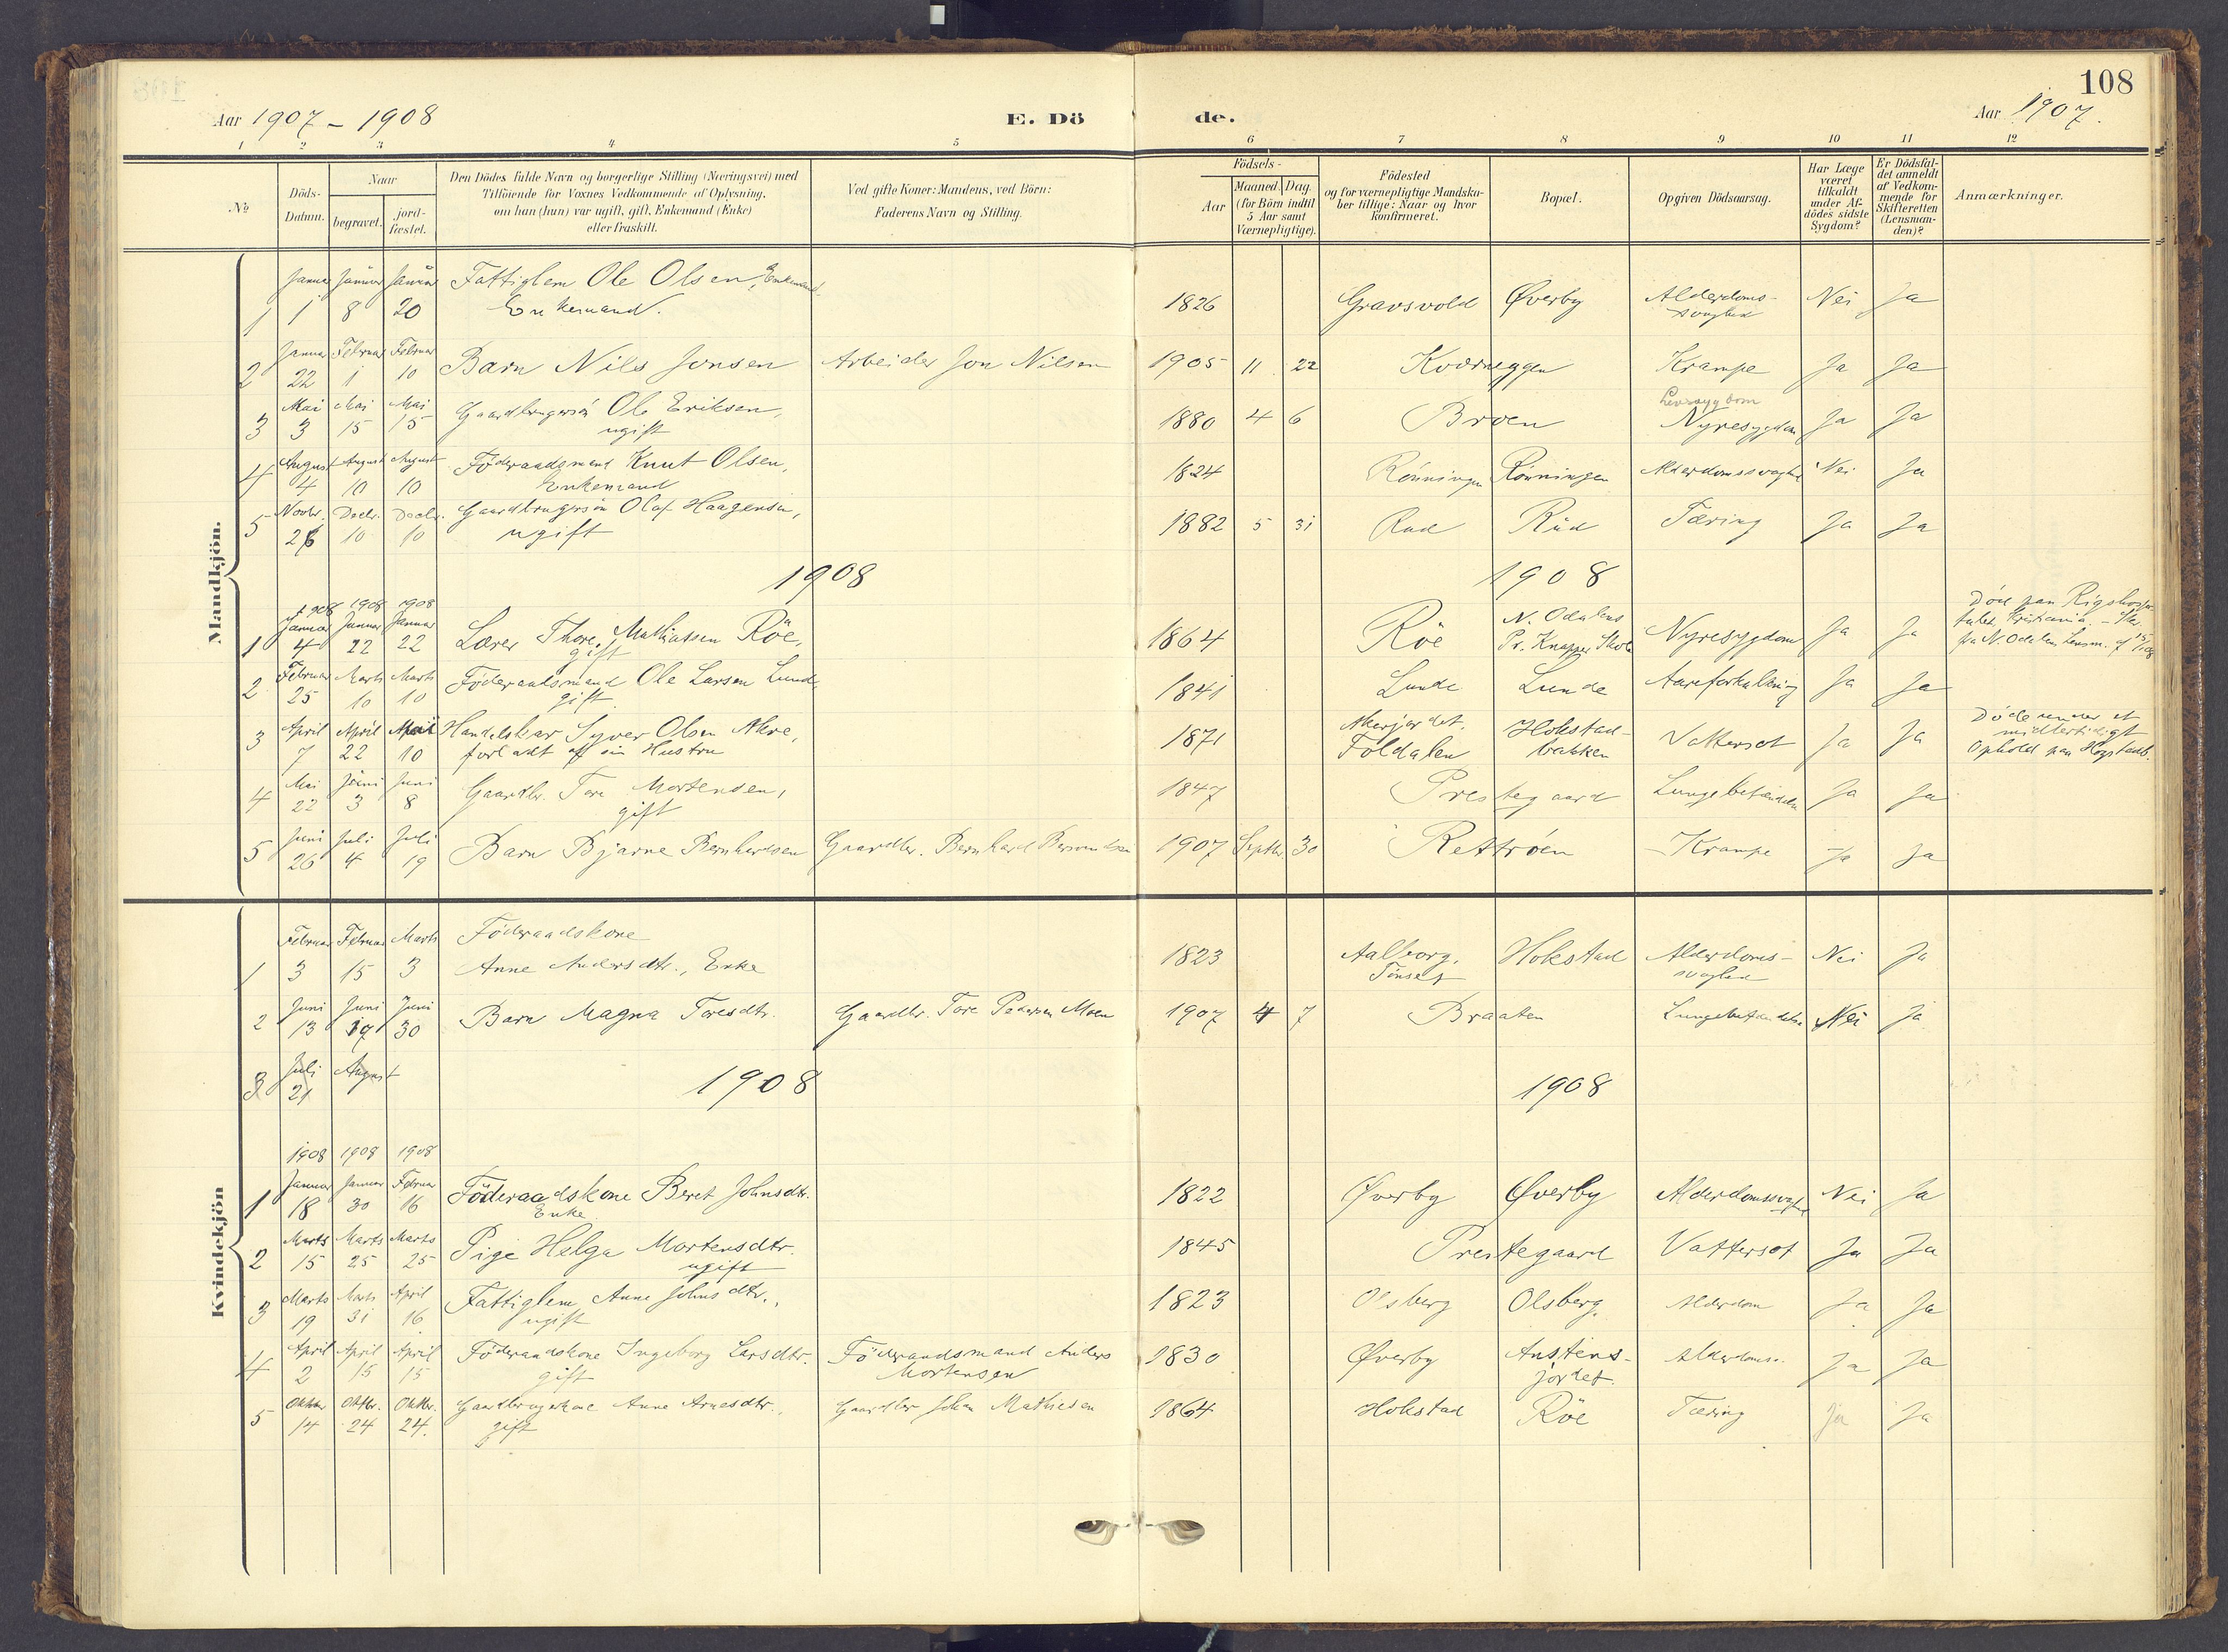 108
Aar 1907 - 1908
E. Dö
de.
Aar 1907.
1 2 3 4 5 6 7 8 9 10 11 12
№
Döds-Datum.
Naar
begravet.
jord-fæstet.
Den Dödes fulde Navn og borgerlige Stilling (Næringsvei) med
Tilföiende for Voxnes Vedkommende af Oplysning,
om han (hun) var ugift, gift, Enkemand (Enke)
eller fraskilt.
Ved gifte Koner: Mandens, ved Börn:
Faderens Navn og Stilling.
Födsels-
Aar
Maaned. Dag.
(for Börn indtil
5 Aar samt
Værnepligtige).
Födested
og for værnepligtige Mandska-
ber tillige: Naar og hvor
konfirmeret.
Bopæl.
Opgiven Dödsaarsag.
Har Læge
været
tilkaldt
under Af-
dödes sidste
Sygdom?
Er Dödsfal-
det anmeldt
af Vedkom-
mende for
Skifteretten
(Lensman-
den)?
Anmærkninger.
Mandkjön.
1 Januar 1 Januar 8 Januar 20 Fattiglem Ole Olsen, Enkemand. Enkemand. 1826 Gravsvold Øverby Alderdoms-svaghed Nei Ja
2 Januar 22 Februar 1 Februar 10 Barn Nils Jonsen Arbeider Jon Nilsen 1905 11 22 Kværneggen Krampe Ja Ja
3 Mai 3 Mai 15 Mai 15 Gaardbrugersön Ole Eriksen, ugift 1880 4 6 Broen Nyresygdom Ja Ja
4 August 4 August 10 August 10 Föderaadsmand Knut Olsen, Enkemand 1824 Rönningen Rönningen Alderdomssvaghed Nei Ja
5 Novbr. 26 Decbr. 10 Decbr. 10 Gaardbrugersön Olaf Haagensen, ugift 1882 5 31 Rud Rud Tæring Ja Ja
1908 1908
1908 1908 1908
1 Januar 4 Januar 22 Januar 22 Lærer Thore Mathiassen Röe, gift 1864 Röe N. Odalens Pr. Knapper Skole Nyresygdom Ja Ja Död paa Rigshospitalet, Kristiania.
2 Februar 25 Marts 10 Marts 10 Föderaadsmand Ole Larsen Lund, gift 1841 Lunde Lunde Aareforkalkning Ja Ja
3 April 7 April 22 Mai 10 Handelskar Syver Olsen Akre, forladt af sin Hustru 1871 Akerjordet. Foldalen Hokstad-bakken Vattersot Ja Ja Döde under et midlertidigt Ophold paa Hogstadb.
4 Mai 22 Juni 3 Juni 8 Gaardbr. Tore Mortensen, gift 1847 Prestegaard Lungebetændelse Ja Ja
5 Juni 26 Juli 4 Juli 19 Barn Bjarne Bernhardsen Gaardbr. Bernhard 1907 Septbr. 30 Rettröen Krampe Ja Ja
Kvindekjön
1 Februar 3 Februar 15 Marts 3 Föderaadskone Anne Andersdtr., Enke 1823 Aalborg. Tönset Hokstad Alderdoms-svaghed Nei Ja
2 Juni 13 Juni 17 Juni 30 Barn Magna Toresdtr. Gaardbr. Tore Pedersen Moen 1907 4 7 Braaten Lungebetændelse Nei Ja
3 Juli 21 August
1908 1908
1908 1908 1908
1 Januar 18 Januar 30 Februar 16 Föderaadskone Beret Johnsdtr. Enke 1822 Øverby Øverby Alderdomssvaghed Nei Ja
2 Marts 15 Marts 25 Marts 25 Pige Helga Mortensdtr. ugift 1845 Prestegaard Vattersot Ja Ja
3 Marts 19 Marts 31 April 16 Fattiglem Anne Johnsdtr., ugift 1823 Olsberg Olsberg. Alderdom Ja Ja
4 April 2 April 15 April 15 Föderaadskone Ingeborg Larsdtr. gift Föderaadsmand Anders Mortensen 1830 Øverby Anstens-jordet. Alderdoms. Ja Ja
5 Oktbr. 14 Oktbr. 24 Oktbr. 24. Gaardbrugerkone Anne Arnesdtr., gift Gaardbr John Mathiesen 1864 Hokstad Röe Tæring Ja Ja